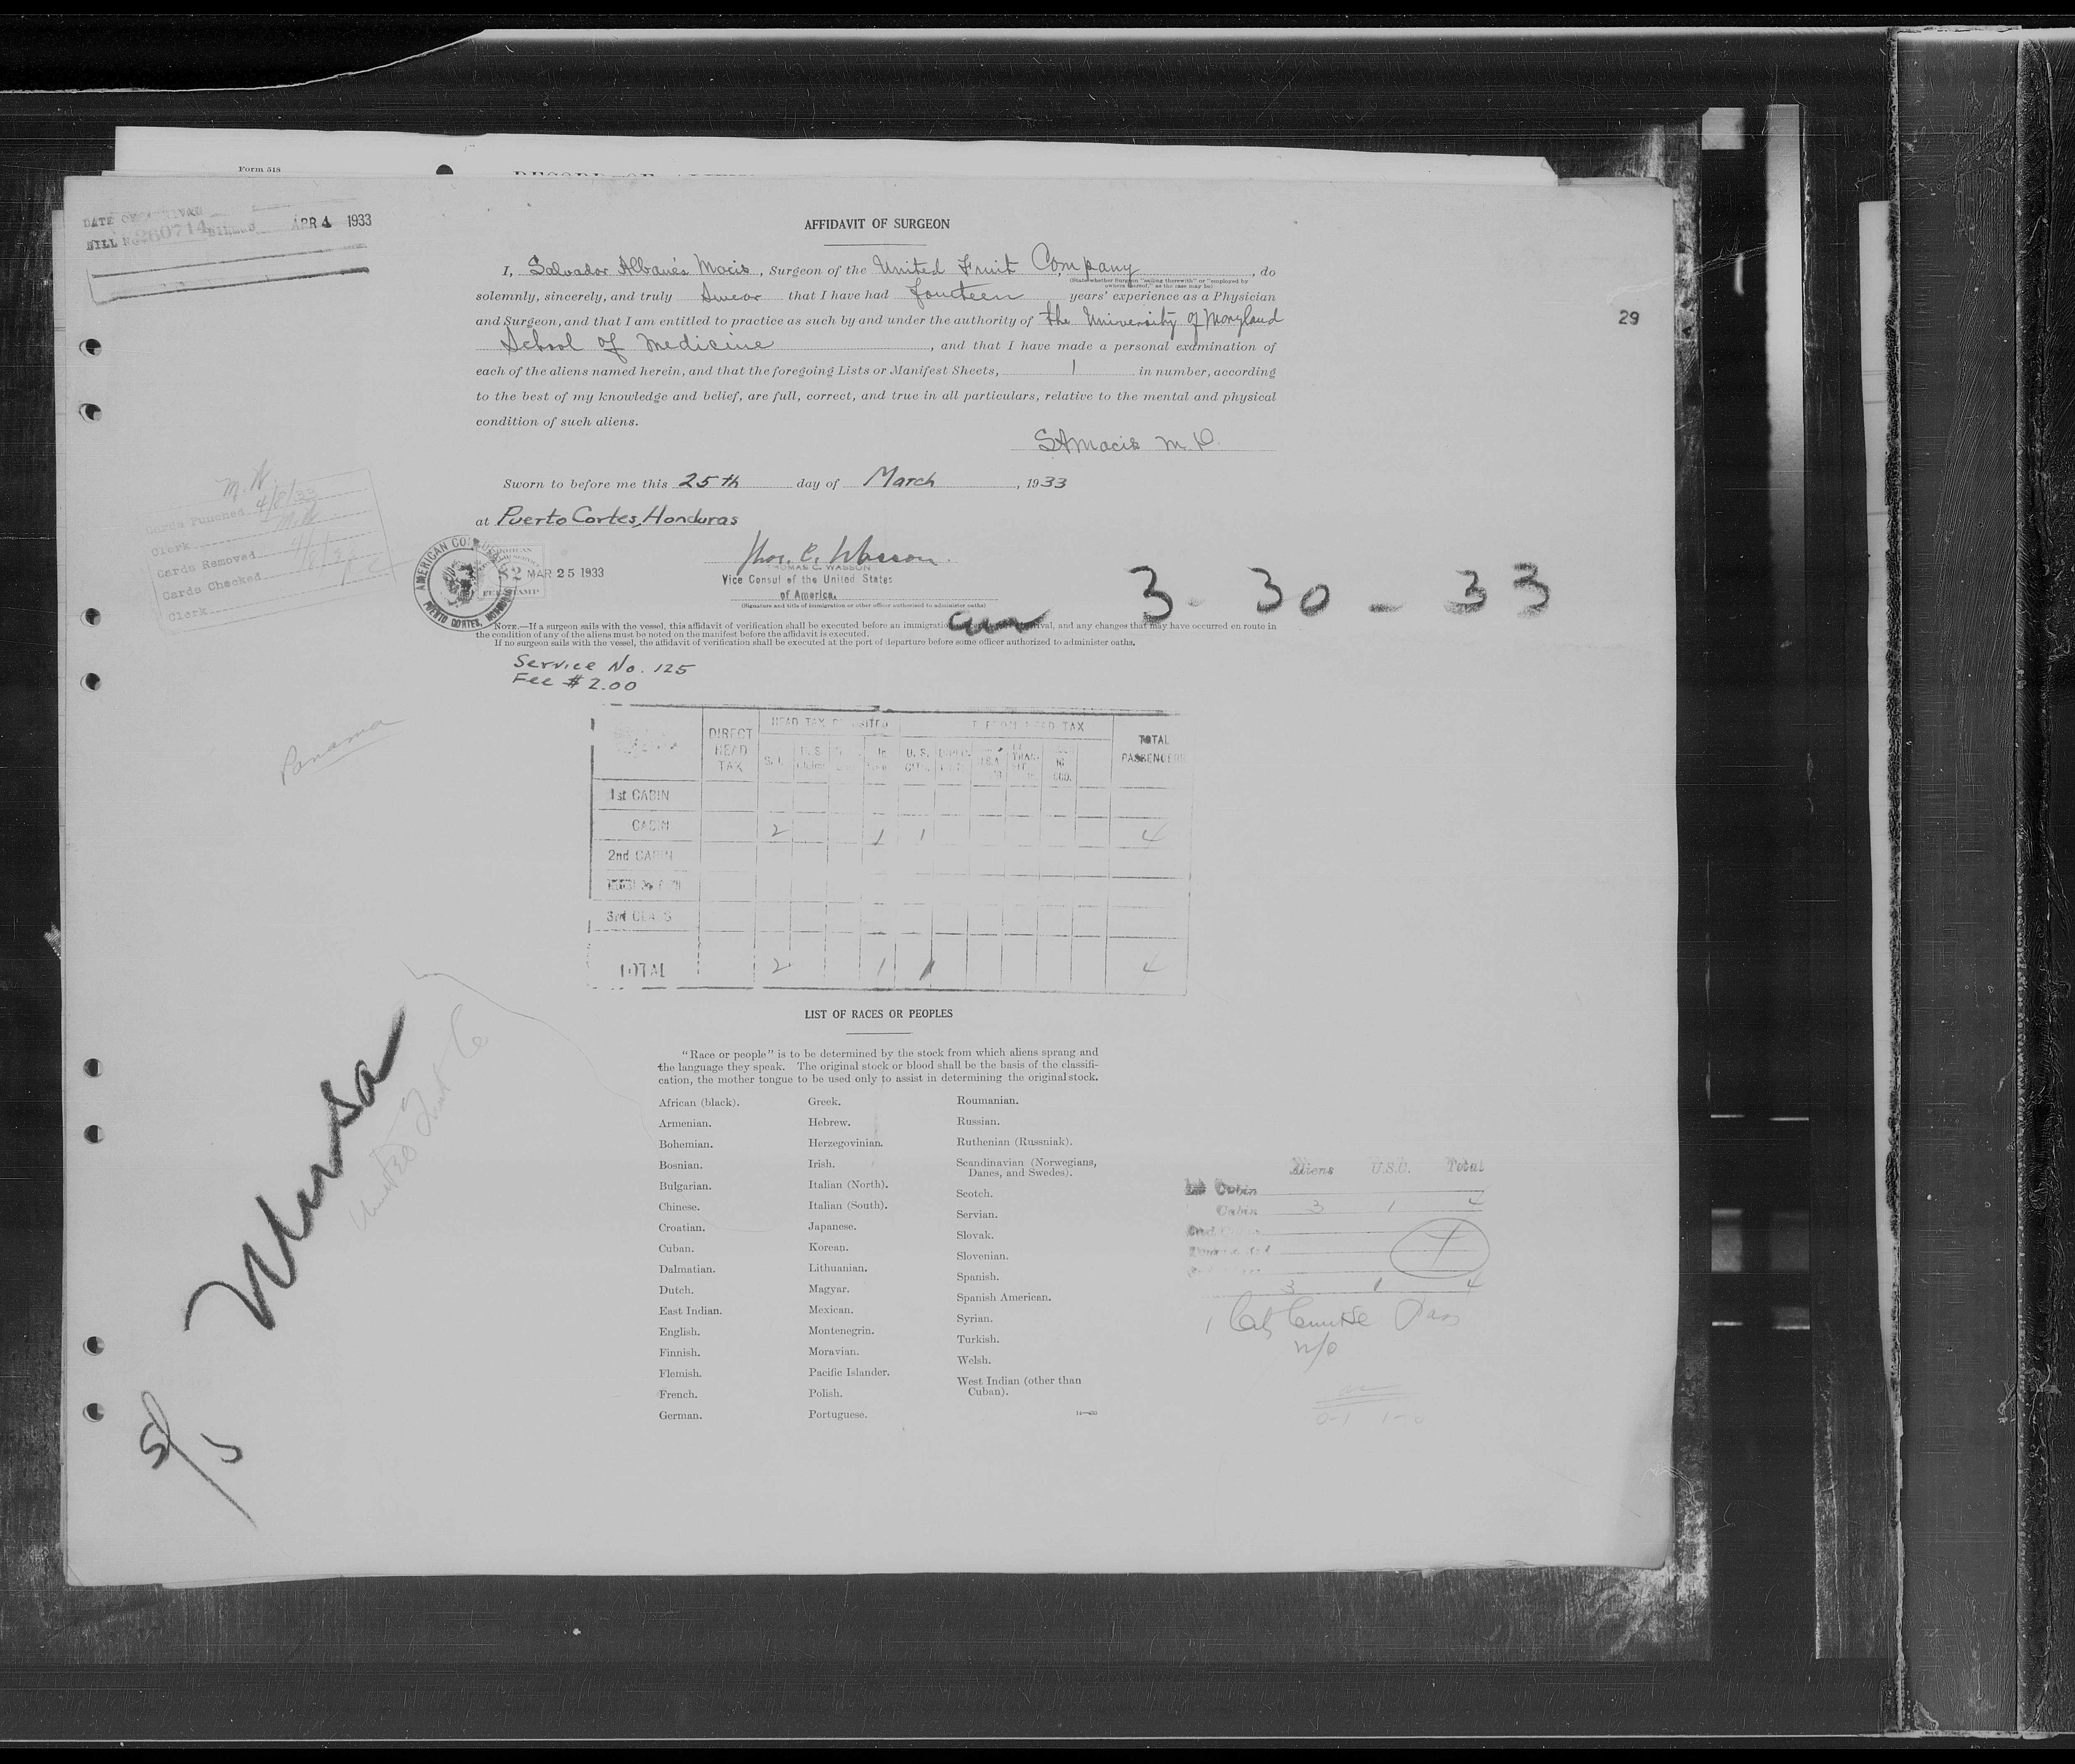 Form 518
DATE OF ARRIVAL
BILL No. 260714 APR 4 1933
29
AFFIDAVIT OF SURGEON
I, Salvador Albanés Macis, Surgeon of the United Fruit Company, do
(State whether Surgeon "sailing therewith" or "employed by
owners thereof," as the case may be)
solemnly, sincerely, and truly swear that I have had fourteen years' experience as a Physician
and Surgeon, and that I am entitled to practice as such by and under the authority of the University of Maryland
School of Medicine, and that I have made a personal examination of
each of the aliens named herein, and that the foregoing Lists or Manifest Sheets, 1 in number, according
to the best of my knowledge and belief, are full, correct, and true in all particulars, relative to the mental and physical
condition of such aliens.
SAMacis M.D.
Sworn to before me this 25th day of March, 1933
at Puerto Cortes, Honduras
M.W.
Cards Punched 4/8/33
Clerk
Cards Removed
Cards Checked
Clerk
AMERICAN CONSULATE
PUERTO CORTES, HONDURAS
FEE STAMP
MAR 25 1933
Thos. C. Wasson.
THOMAS C. WASSON
Vice Consul of the United States
of America.
(Signature and title of immigration or other officer authorized to administer oaths)
arr 3-30-33
NOTE.—If a surgeon sails with the vessel, this affidavit of verification shall be executed before an immigration arrival, and any changes that may have occurred en route in
the condition of any of the aliens must be noted on the manifest before the affidavit is executed.
If no surgeon sails with the vessel, the affidavit of verification shall be executed at the port of departure before some officer authorized to administer oaths.
Service No. 125
Fee $2.00
Panama
DIRECT HEAD TAX
HEAD TAX DEPOSITED
HEAD TAX
TOTAL PASSENGERS
1st CABIN
CABIN 2 1 1 4
2nd CABIN
3rd CLASS
TOTAL 2 1 1 4
Musa
United Fruit Co
5/5
LIST OF RACES OR PEOPLES
"Race or people" is to be determined by the stock from which aliens sprang and
the language they speak. The original stock or blood shall be the basis of the classifi-
cation, the mother tongue to be used only to assist in determining the original stock.
African (black).
Armenian.
Bohemian.
Bosnian.
Bulgarian.
Chinese.
Croatian.
Cuban.
Dalmatian.
Dutch.
East Indian.
English.
Finnish.
Flemish.
French.
German.
Greek.
Hebrew.
Herzegovinian.
Irish.
Italian (North).
Italian (South).
Japanese.
Korean.
Lithuanian.
Magyar.
Mexican.
Montenegrin.
Moravian.
Pacific Islander.
Polish.
Portuguese.
Roumanian.
Russian.
Ruthenian (Russniak).
Scandinavian (Norwegians,
Danes, and Swedes).
Scotch.
Servian.
Slovak.
Slovenian.
Spanish.
Spanish American.
Syrian.
Turkish.
Welsh.
West Indian (other than
Cuban).
Aliens U.S.C. Total
1st Cabin
Cabin 3 1 4
3 1 4